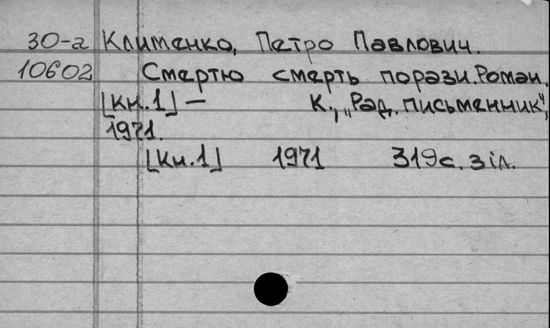 30-а Клименко, Петро Павлович.
10602 Смертю смерть порази. Роман.
[кн.1] — К., „Рад. письменник",
1971.
[Кн.1] 1971 319с. з іл.